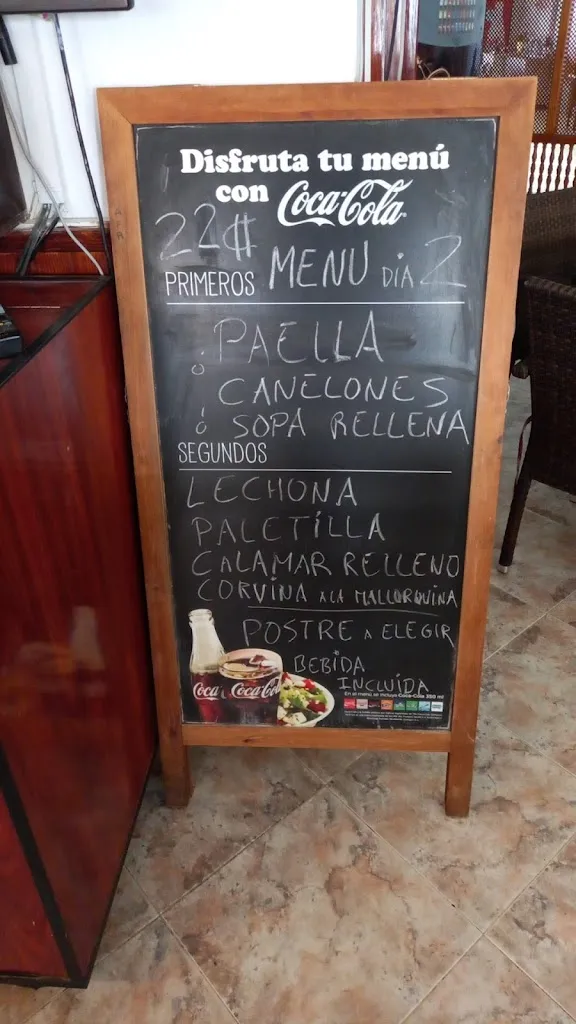 Disfruta tu menú
con Coca-Cola
22₡ MENU DIA 2
PRIMEROS
PAELLA
CANELONES
SOPA RELLENA
SEGUNDOS
LECHONA
PALETILLA
CALAMAR RELLENO
CORVINA A LA MALLORQUINA
POSTRE A ELEGIR
BEBIDA
INCLUIDA
Coca Coca-Cola
En el menú se incluye Coca-Cola 350 ml